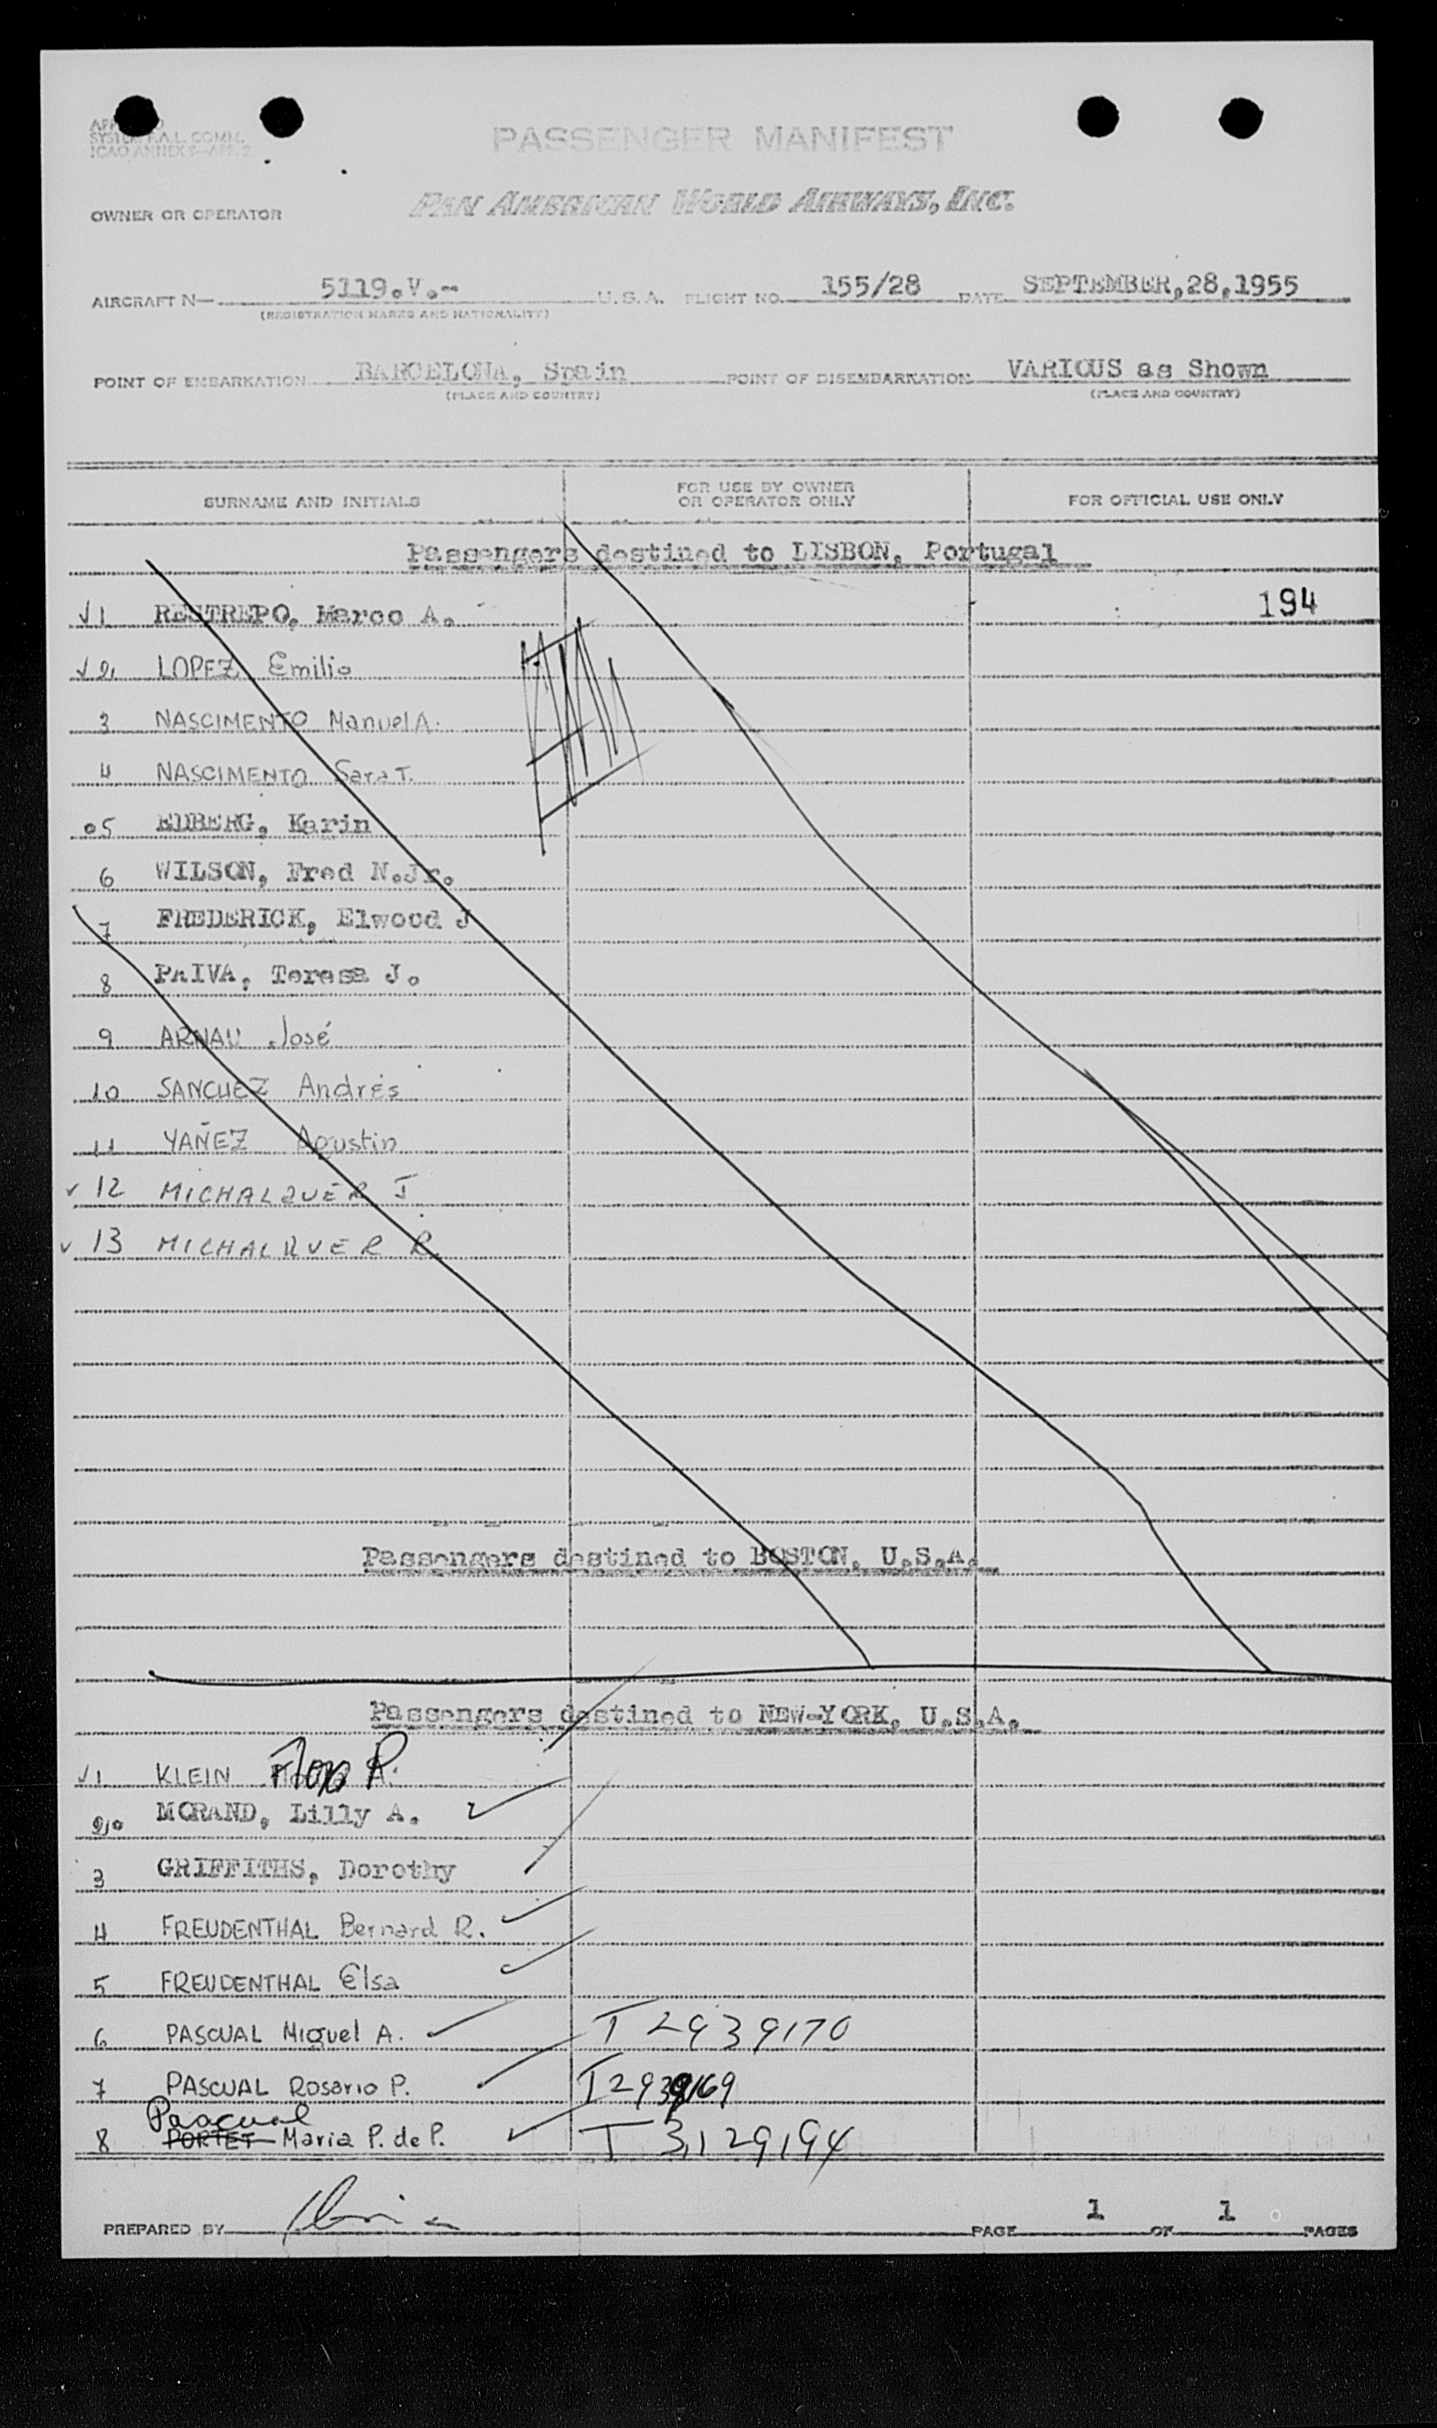 PASSENGER MANIFEST
ICAO ANNEX
PAN AMERICAN WORLD AIRWAYS, INC.
OWNER OR OPERATOR
AIRCRAFT N— 5119.V.-- U.S.A. FLIGHT NO. 155/28 DATE SEPTEMBER,28,1955
(REGISTRATION MARKS AND NATIONALITY)
POINT OF EMBARKATION BARCELONA, Spain POINT OF DISEMBARKATION VARIOUS as Shown
(PLACE AND COUNTRY) (PLACE AND COUNTRY)
SURNAME AND INITIALS FOR USE BY OWNER OR OPERATOR ONLY FOR OFFICIAL USE ONLY
Passengers destined to LISBON, Portugal
√ 1 RESTREPO, Marco A. 194
√ 2 LOPEZ Emilio
3 NASCIMENTO Manuel A.
4 NASCIMENTO Sara T.
5 EDBERG, Karin
6 WILSON, Fred N.Jr.
7 FREDERICK, Elwood J
8 PAIVA, Teresa J.
9 ARNAU José
10 SANCHEZ Andrés
11 YAÑEZ Agustin
√ 12 MICHALQUER J
√ 13 MICHALQUER R
Passengers destined to BOSTON, U.S.A.
Passengers destined to NEW-YORK, U.S.A.
√ 1 KLEIN Flora P.
2 MORAND, Lilly A. ✓
3 GRIFFITHS, Dorothy ✓
4 FREUDENTHAL Bernard R. ✓
5 FREUDENTHAL Elsa ✓
6 PASCUAL Miguel A. ✓ T 2939170
7 PASCUAL Rosario P. ✓ T 2939169
Pascual
8 PORTET Maria P. de P. ✓ T 3129194
PREPARED BY PAGE 1 OF 1 PAGES